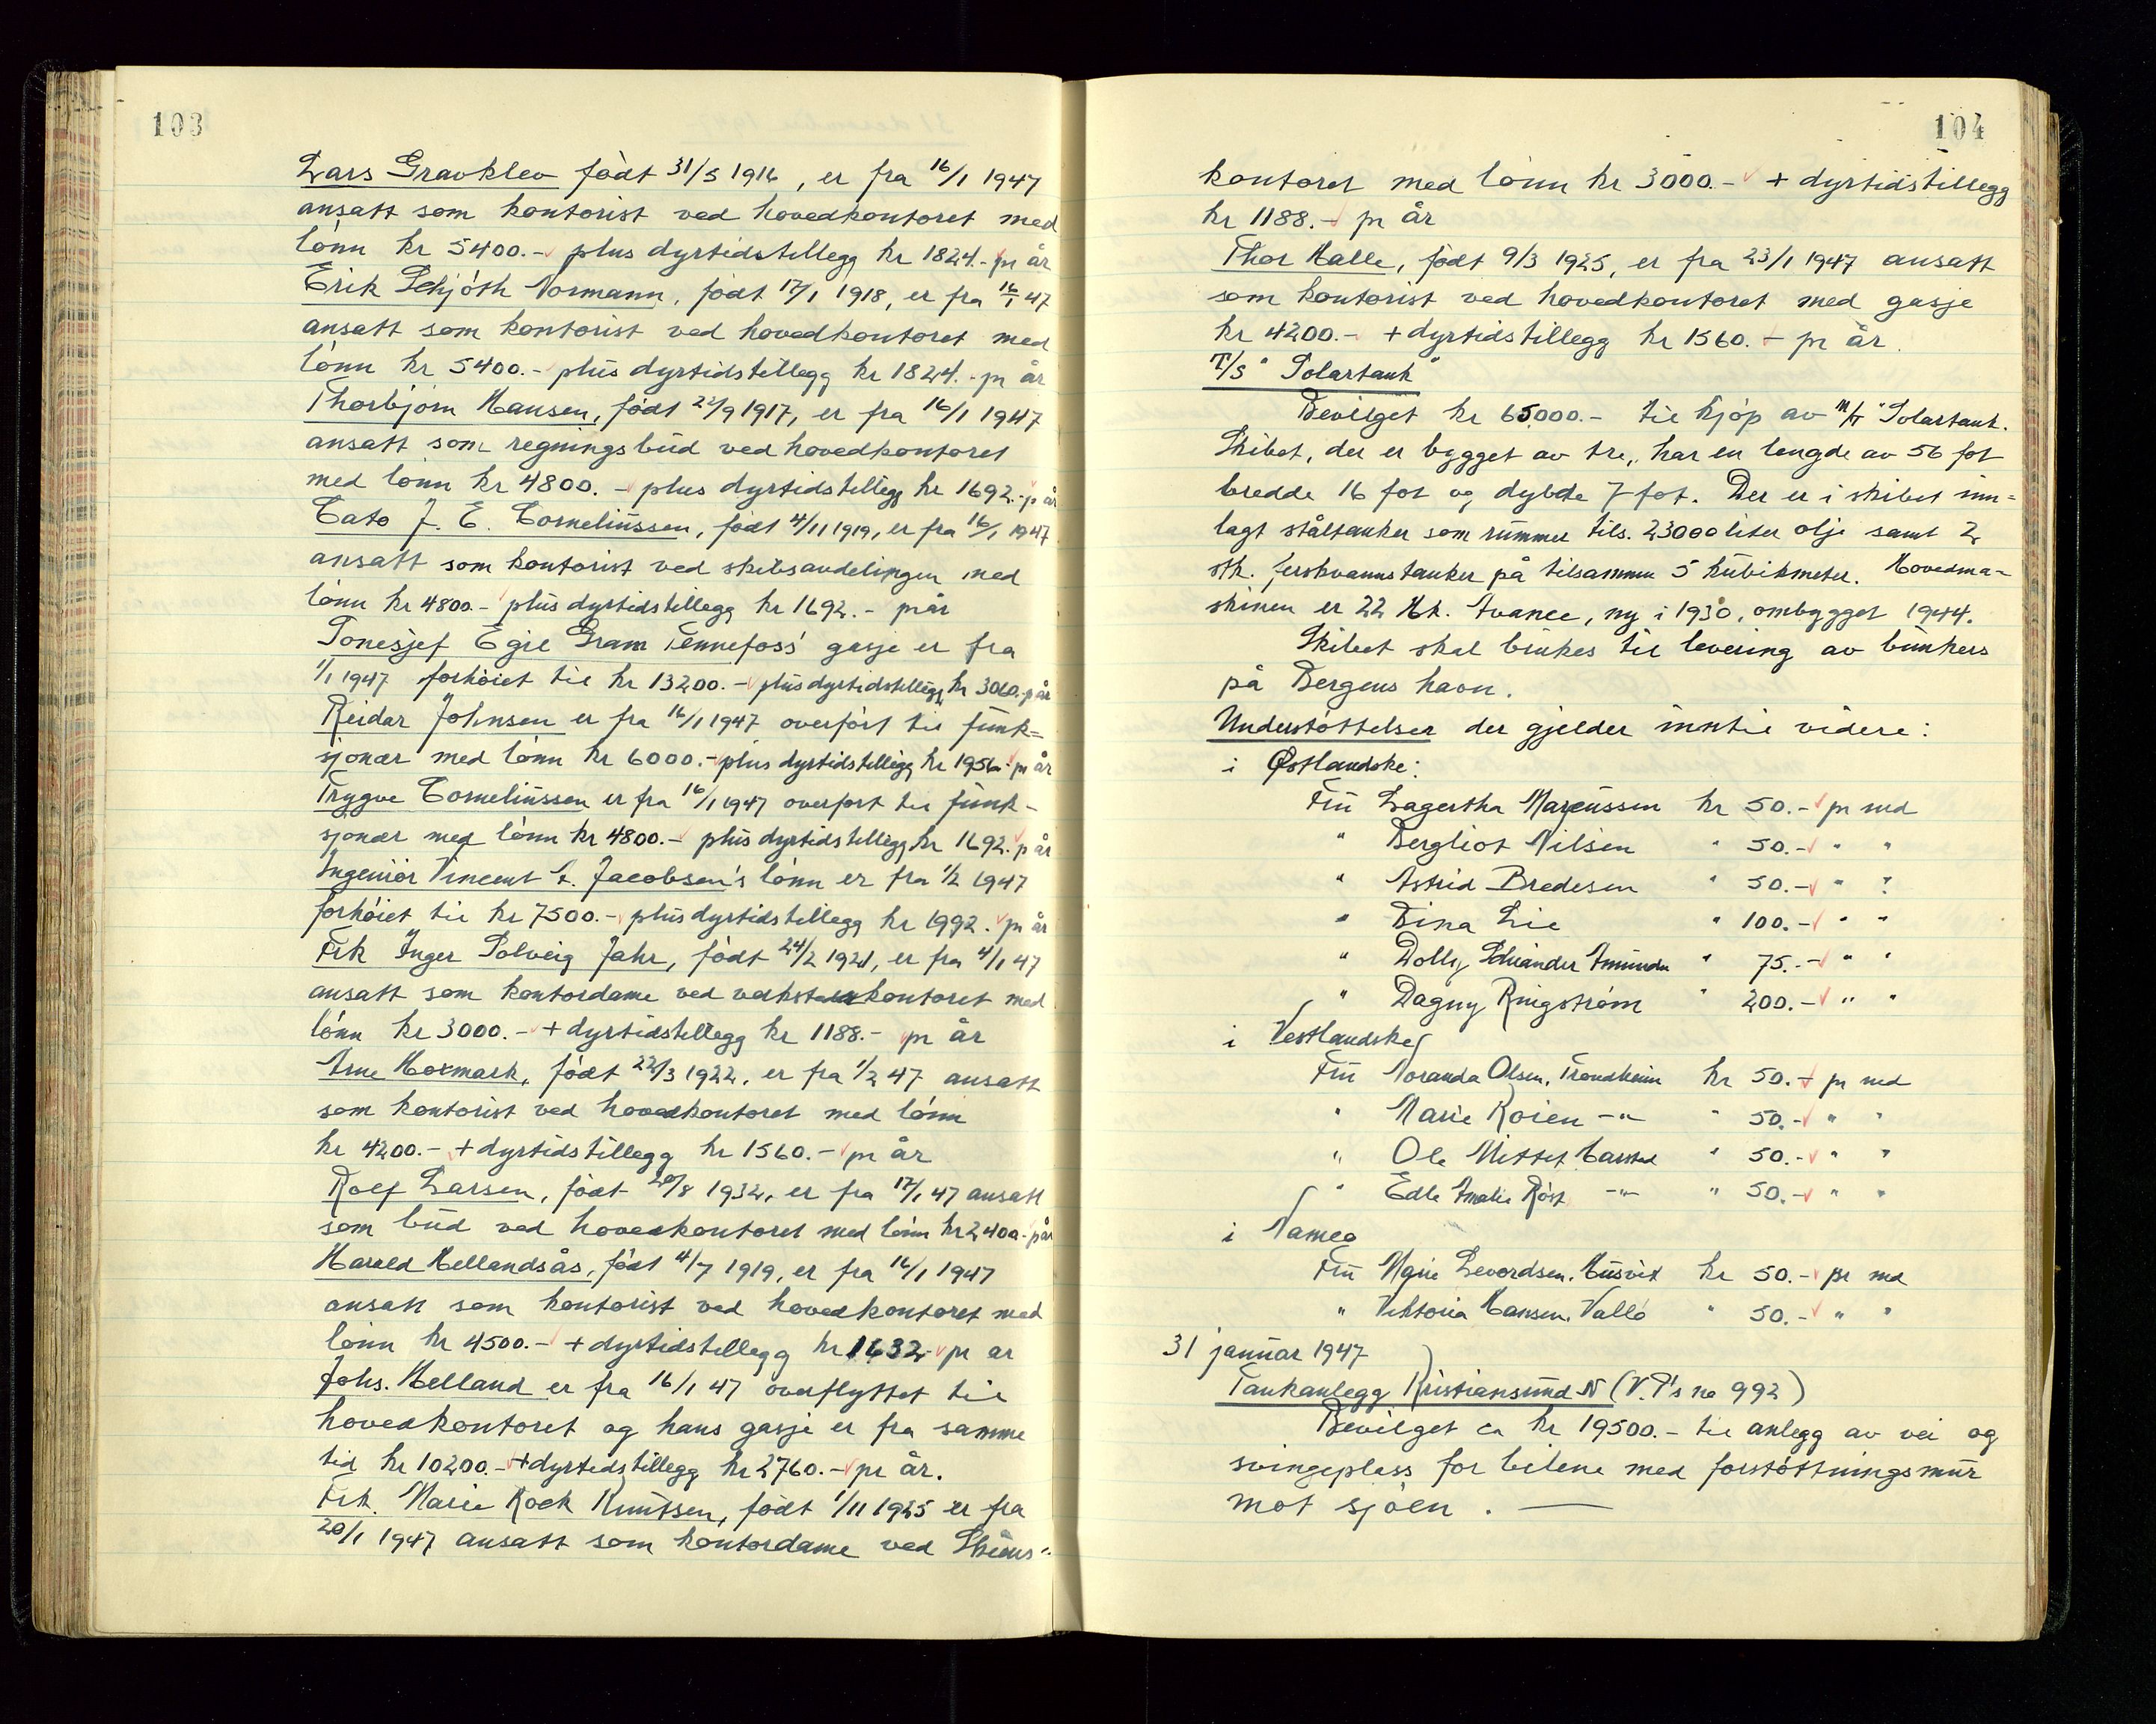 103
Lars Gravklev født 31/5 1916, er fra 16/1 1947
ansatt som kontorist ved hovedkontoret med
lönn kr 5400.- plus dyrtidstillegg kr 1824.- pr år
Erik Schjöth Normann, födt 17/1 1918, er fra 16/1 47
ansatt som kontorist ved hovedkontoret med
lönn kr 5400.- plus dyrtidstillegg kr 1824.- pr år
Thorbjörn Hansen, födt 22/9 1917, er fra 16/1 1947
ansatt som regningsbud ved hovedkontoret
med lönn kr 4800.- plus dyrtidstillegg kr 1692.- pr år
Cato J. E. Corneliussen, födt 4/11 1919, er fra 16/1 1947
ansatt som kontorist ved skibsavdelingen med
lönn kr 4800.- plus dyrtidstillegg kr 1692.- pr år
Sonesjef Egil Gram Tennefoss' gasje er fra
1/1 1947 forhöiet til kr 13200.- plus dyrtidstillegg kr 3060.- pr år
Reidar Johnsen er fra 16/1 1947 overfört til funk=
sjonær med lönn kr 6000.- plus dyrtidstillegg kr 1956.- pr år
Trygve Corneliussen er fra 16/1 1947 overfört til funk-
sjonær med lönn kr 4800.- plus dyrtidstillegg kr 1692.- pr år
Ingeniör Vincent A. Jacobsen's lönn er fra 1/2 1947
forhöiet til kr 7500.- plus dyrtidstillegg kr 1992.- pr år
Frk Inger Solveig Jahr, födt 24/2 1921, er fra 4/1 47
ansatt som kontordame ved kontoret med
lönn kr 3000.- + dyrtidstillegg kr 1188.- pr år
Arne Hoxmark, födt 22/3 1922, er fra 1/2 47 ansatt
som kontorist ved hovedkontoret med lönn
kr 4200.- + dyrtidstillegg kr 1560.- pr år
Rolf Larsen, födt 20/8 1932, er fra 17/1 47 ansatt
som bud ved hovedkontoret med lönn kr 2400.- pr år
Harald Hellandsås, födt 4/7 1919, er fra 16/1 1947
ansatt som kontorist ved hovedkontoret med
lönn kr 4500.- + dyrtidstillegg kr 1632.- pr år
Johs. Helland er fra 16/1 47 overflyttet til
hovedkontoret og hans gasje er fra samme
tid kr 10200.- + dyrtidstillegg kr 2760.- pr år.
Frk. Marie Rock Knutsen, födt 1/11 1925 er fra
20/1 1947 ansatt som kontordame ved Skiens-
104
kontoret med lönn kr 3000.- + dyrtidstillegg
kr 1188.- pr år
Thor Halle, födt 9/3 1925, er fra 23/1 1947 ansatt
som kontorist ved hovedkontoret med gasje
kr 4200.- + dyrtidstillegg kr 1560.- pr år.
T/S "Solartank"
Bevilget kr 65000.- til kjöp av M/T "Solartank.
Skibet, der er bygget av tre, har en lengde av 56 fot
bredde 16 fot og dybde 7 fot. Der er i skibet inn=
lagt ståltanker som rummer tils. 23000 liter olje samt 2
stk. ferskvannstanker på tilsammen 5 kubikmeter. Hovedma=
skinen er 22 Hk. Avance, ny i 1930, ombygget 1944.
Skibet skal brukes til levering av bunkers
på Bergens havn.
Understöttelser der gjelder inntil videre:
i Østlandske:
Fru Lagertha Marcussen kr 50.- pr md
" Bergliot Nilsen " 50.- " "
" Astrid Bredesen " 50.- " "
" Dina Lie " 100.- " "
" Dolly Amundsen " 75.- " "
" Dagny Ringström " 200.- " "
i Vestlandske
Fru Noranda Olsen, Trondheim kr 50.- pr md
" Marie Roien -"- " 50.- " "
" Ole Mittet Harstad " 50.- " "
" Edle Amalie Röst -"- " 50.- " "
i Namea
Fru Marie Levordsen, Husvik kr 50.- pr md
" Viktoria Hansen, Vallö " 50.- " "
31 januar 1947
Tankanlegg Kristiansund N (V.P's no 992)
Bevilget ca kr 19500.- til anlegg av vei og
svingeplass for bilene med forstöttningsmur
mot sjöen. —